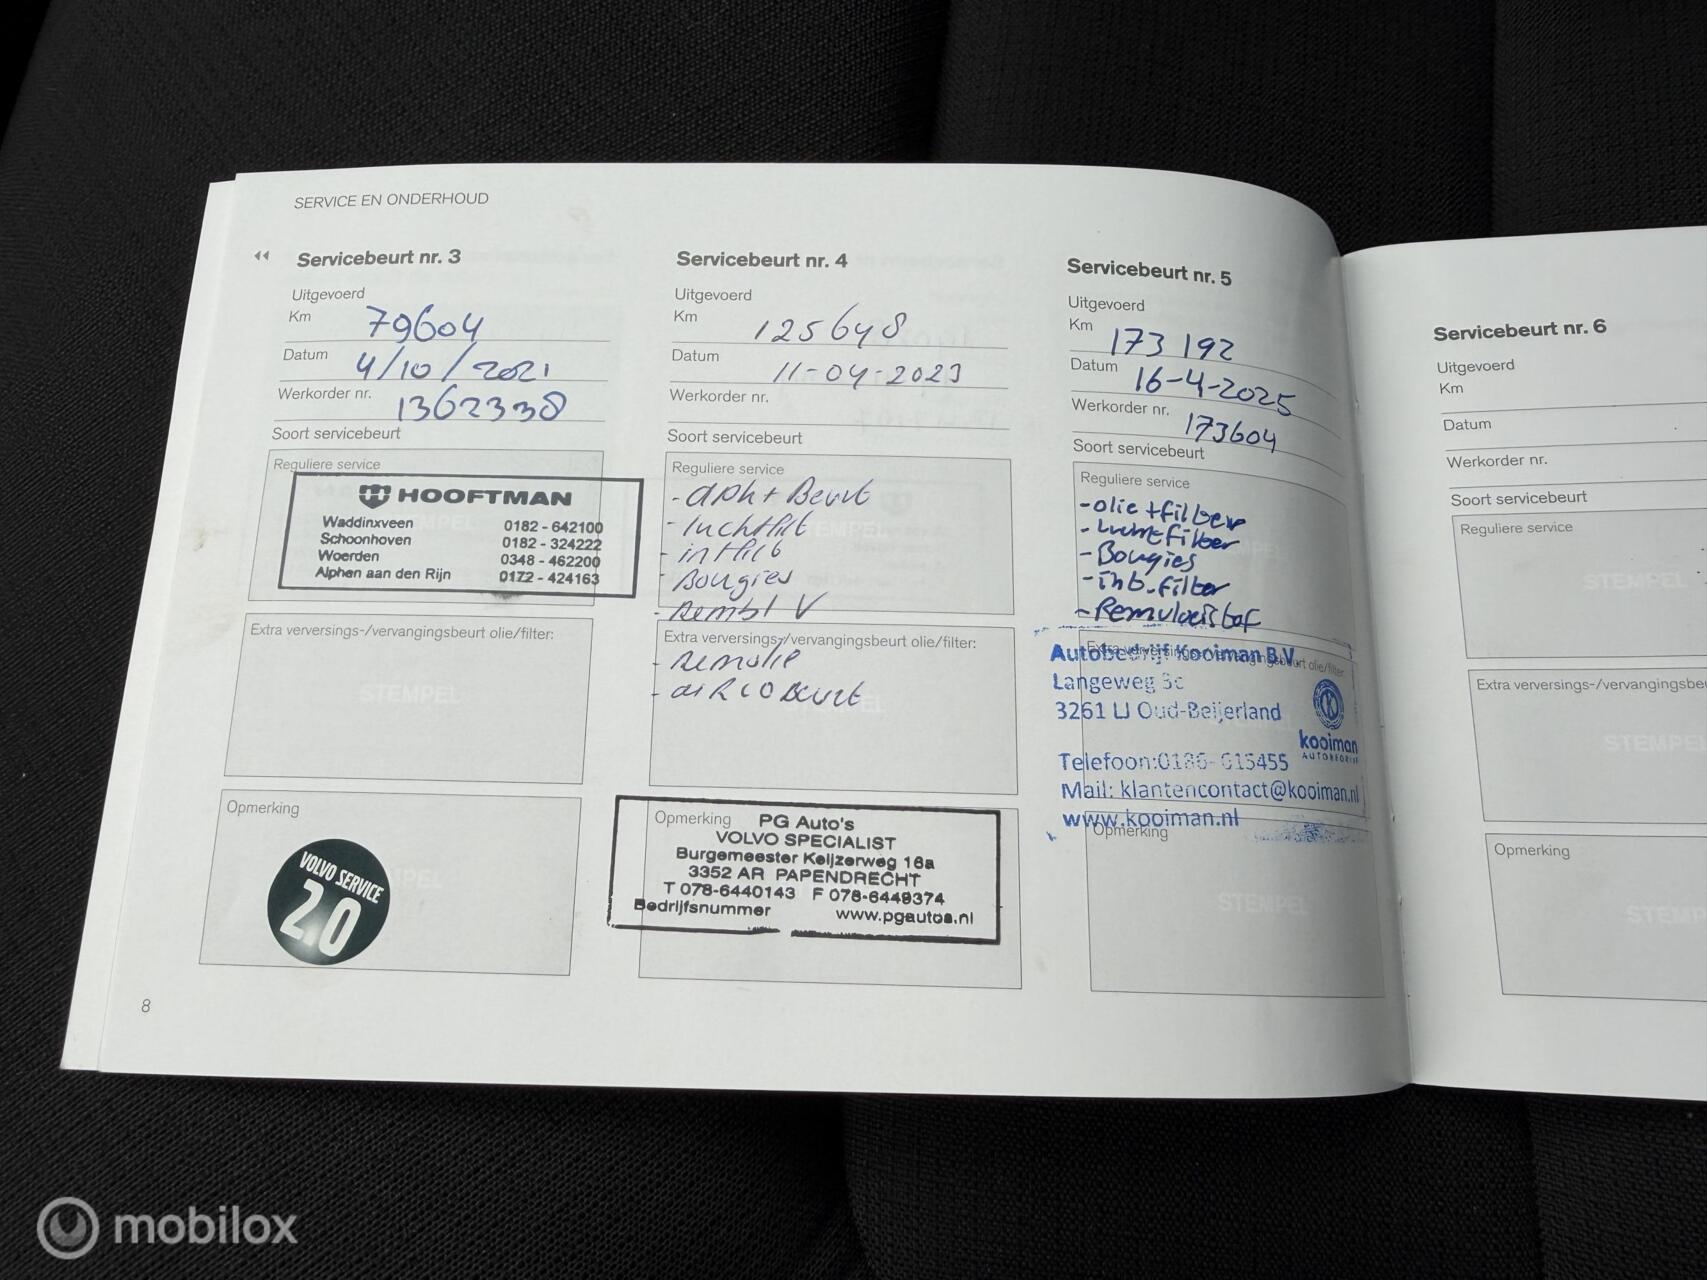 SERVICE EN ONDERHOUD
Servicebeurt nr. 3
Uitgevoerd
Km 79604
Datum 4/10/2021
Werkorder nr. 1362338
Soort servicebeurt
Reguliere service
HOOFTMAN
Waddinxveen 0182 - 642100
Schoonhoven 0182 - 324222
Woerden 0348 - 462200
Alphen aan den Rijn 0172 - 424163
Extra verversings-/vervangingsbeurt olie/filter:
STEMPEL
Opmerking
VOLVO SERVICE
2.0
8
Servicebeurt nr. 4
Uitgevoerd
Km 125648
Datum 11-04-2023
Werkorder nr.
Soort servicebeurt
Reguliere service
- Beurt
- luchtfilt
- intfilt
- Bougies
- Rembl V
Extra verversings-/vervangingsbeurt olie/filter:
- Remolie
- airco Beurt
Opmerking
PG Auto's
VOLVO SPECIALIST
Burgemeester Keijzerweg 16a
3352 AR PAPENDRECHT
T 078-6440143 F 078-6449374
Bedrijfsnummer www.pgautos.nl
Servicebeurt nr. 5
Uitgevoerd
Km 173 192
Datum 16-4-2025
Werkorder nr. 173604
Soort servicebeurt
Reguliere service
- olie + filter
- luchtfilter
- Bougies
- inb.filter
- Remvloeistof
Extra verversings-/vervangingsbeurt olie/filter:
Autobedrijf Kooiman B.V.
Langeweg 3c
3261 LJ Oud-Beijerland
kooiman
AUTOBEDRIJF
Telefoon:0186-615455
Mail: klantencontact@kooiman.nl
www.kooiman.nl
Opmerking
STEMPEL
Servicebeurt nr. 6
Uitgevoerd
Km
Datum
Werkorder nr.
Soort servicebeurt
Reguliere service
STEMPEL
Extra verversings-/vervangingsbeu
STEMPEL
Opmerking
STEMP
mobilox